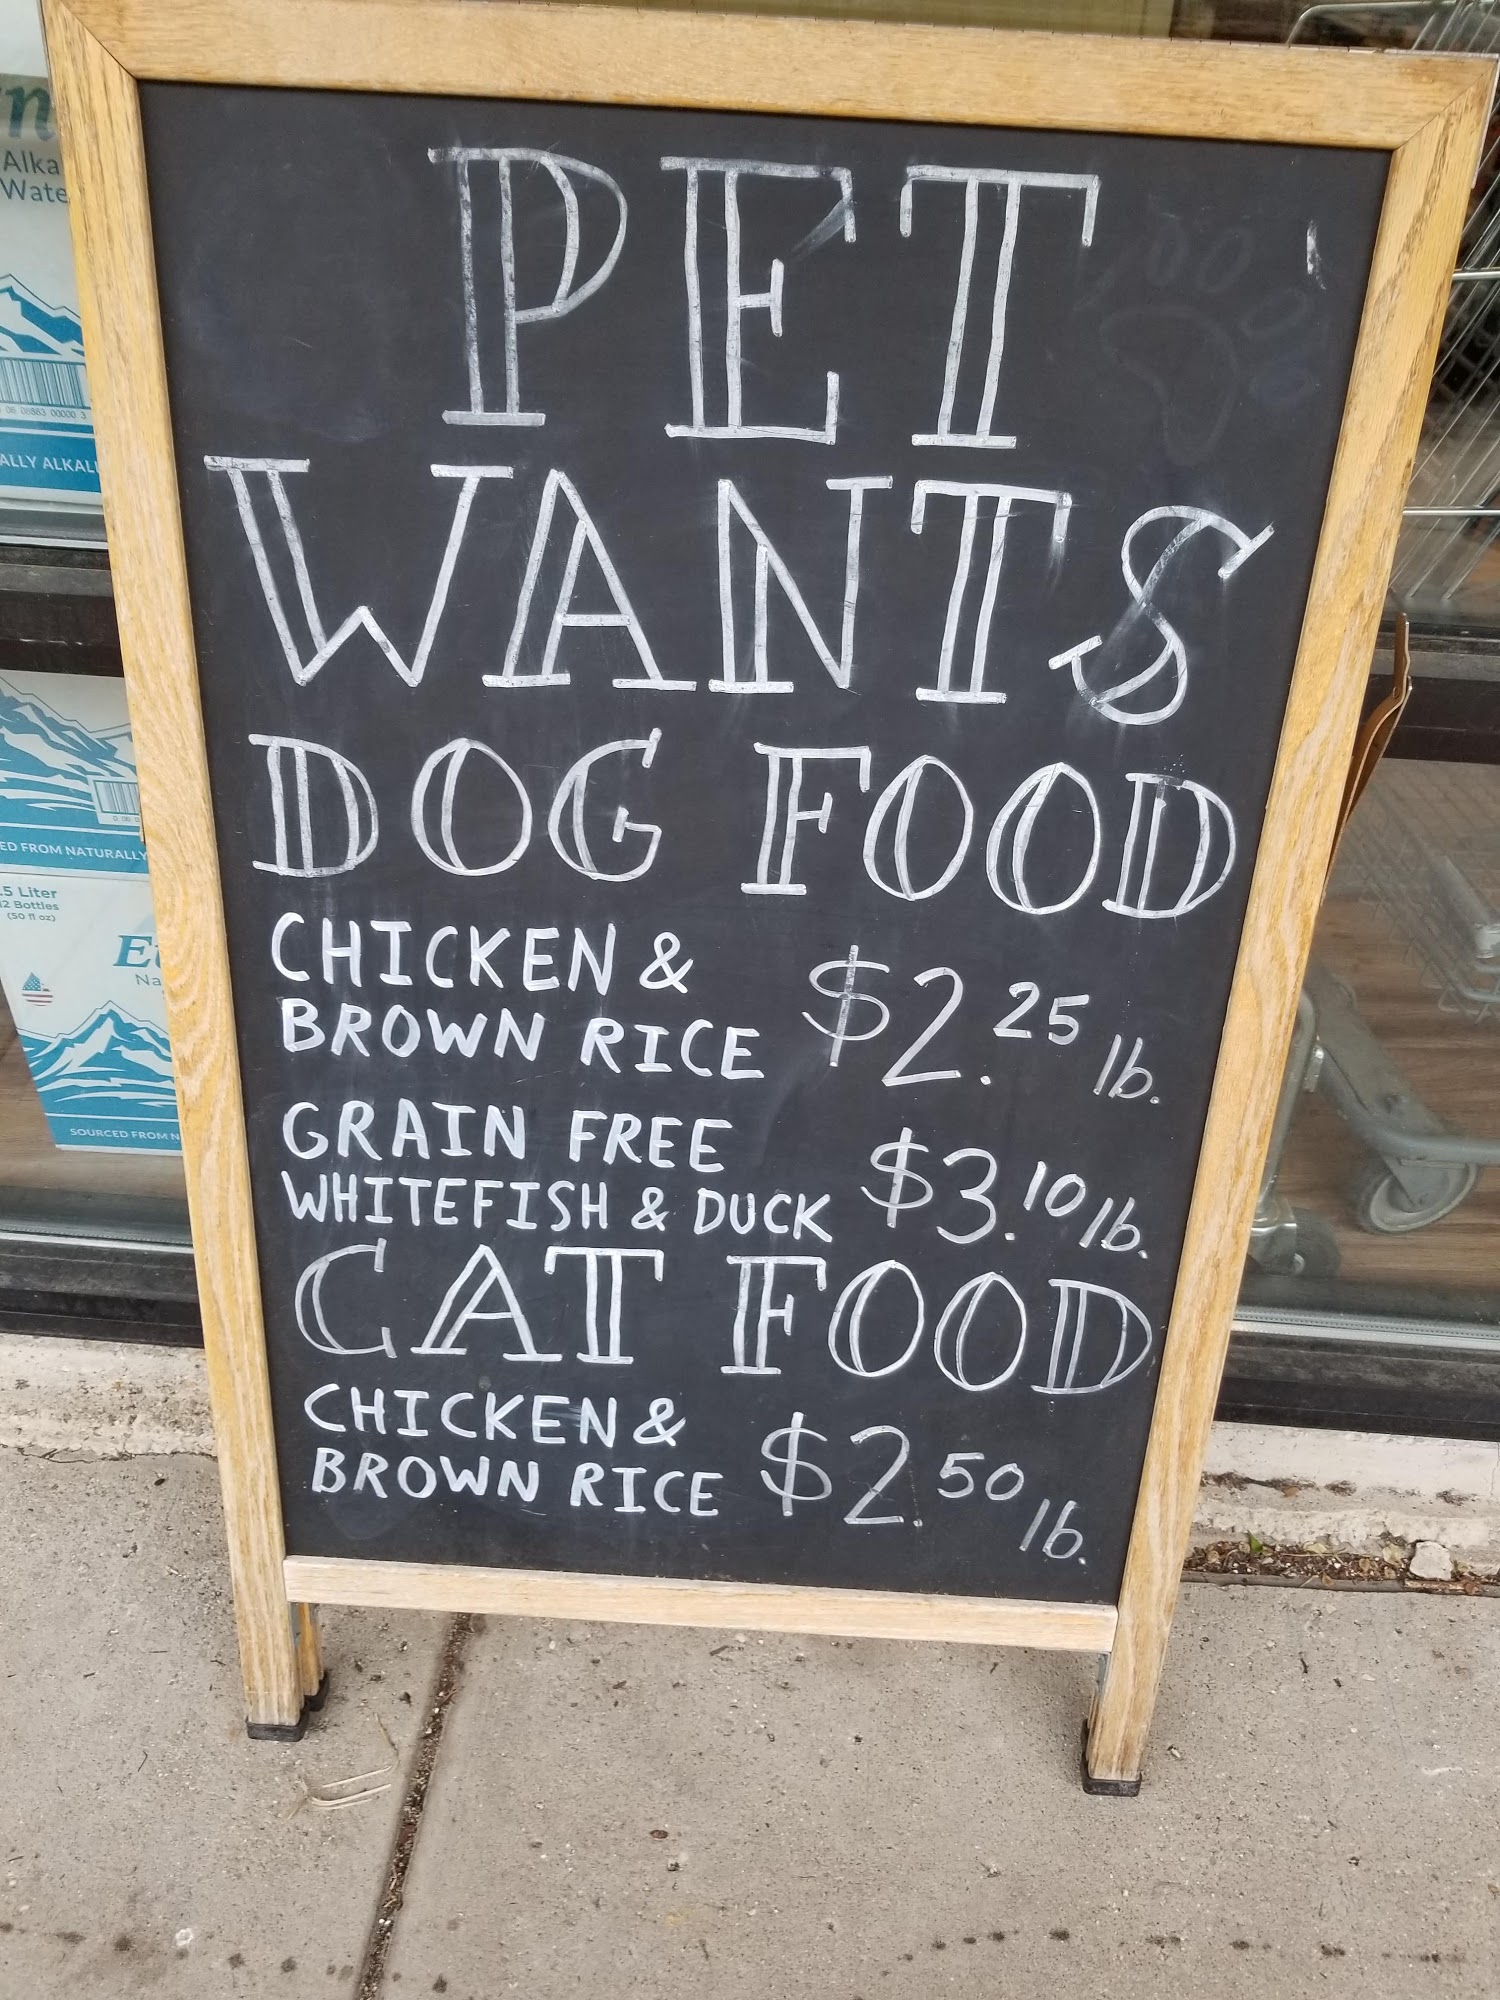 PET
WANTS
DOG FOOD
CHICKEN &
BROWN RICE $2.25 lb.
GRAIN FREE
WHITEFISH & DUCK $3.10 lb.
CAT FOOD
CHICKEN &
BROWN RICE $2.50 lb.
Alka
Wate
06 08883 00000 3
ALLY ALKAL
ED FROM NATURALLY
.5 Liter
12 Bottles
(50 fl oz)
Na
SOURCED FROM N